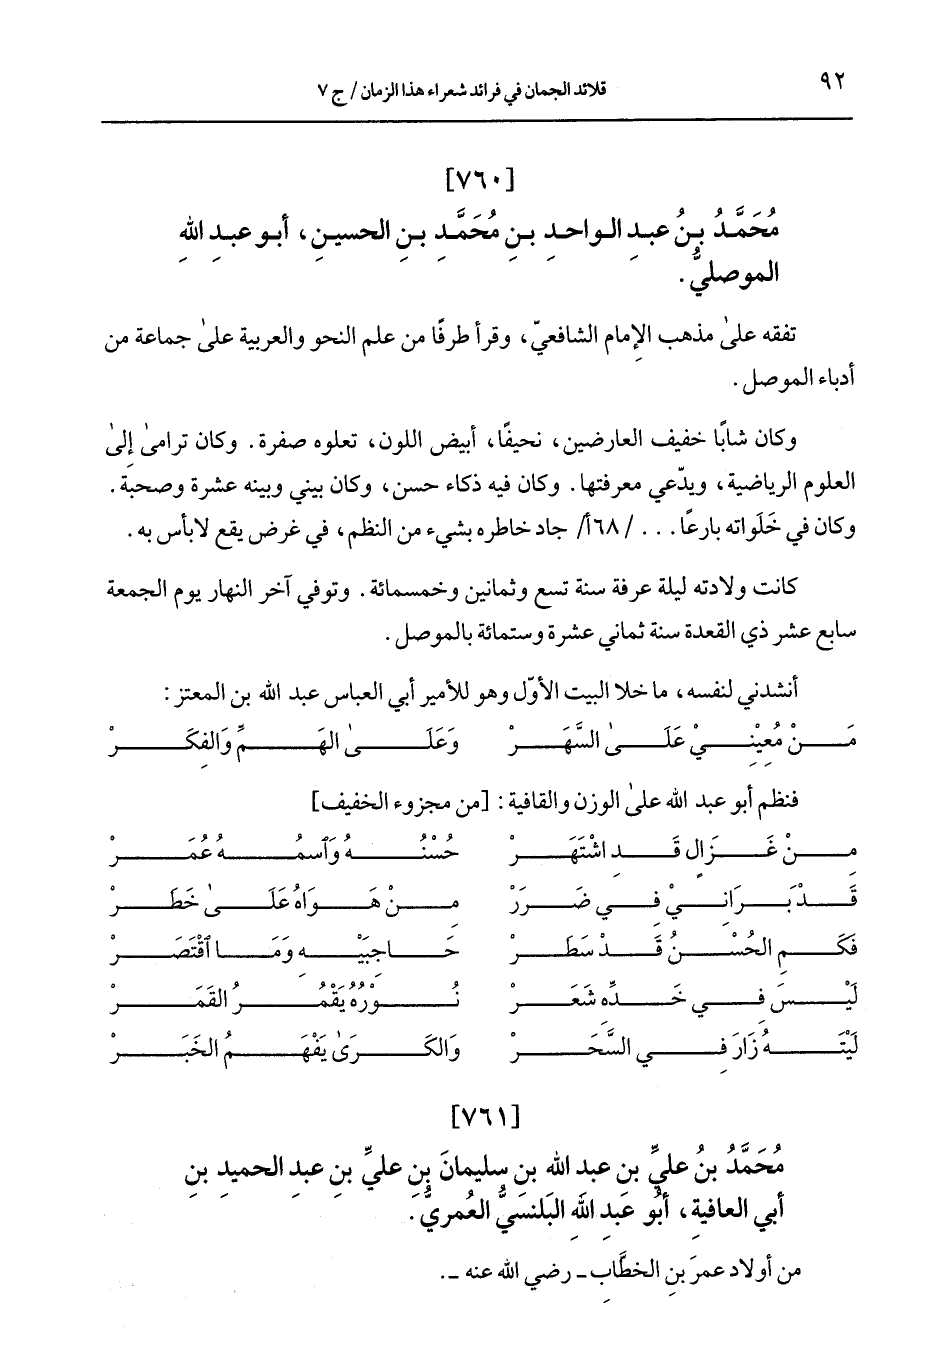 ٩٢
قلائد الجمان في فرائد شعراء هذا الزمان / ج ٧
[٧٦٠]
مُحَمَّدُ بنُ عبدِ الواحدِ بنِ مُحَمَّدِ بنِ الحسينِ، أبو عبدِ اللهِ
الموصليُّ.
تفقه علىٰ مذهب الإمام الشافعيّ، وقرأ طرفًا من علم النحو والعربية علىٰ جماعة من
أدباء الموصل.
وكان شابًا خفيف العارضين، نحيفًا، أبيض اللون، تعلوه صفرة. وكان ترامىٰ إلىٰ
العلوم الرياضية، ويدّعي معرفتها. وكان فيه ذكاء حسن، وكان بيني وبينه عشرة وصحبة.
وكان في خَلَواته بارعًا. . . /٦٨أ/ جاد خاطره بشيء من النظم، في غرض يقع لابأس به.
كانت ولادته ليلة عرفة سنة تسع وثمانين وخمسمائة. وتوفي آخر النهار يوم الجمعة
سابع عشر ذي القعدة سنة ثماني عشرة وستمائة بالموصل.
أنشدني لنفسه، ما خلا البيت الأوّل وهو للأمير أبي العباس عبد الله بن المعتز:
مَنْ مُعِيْنِيْ عَلَىٰ السَّهَرْ وَعَلَىٰ الهَمِّ وَالفِكَرْ
فنظم أبو عبد الله علىٰ الوزن والقافية: [من مجزوء الخفيف]
مِنْ غَزَالٍ قَد اشْتَهَرْ حُسْنُهُ وَٱسمُهُ عُمَرْ
قَدْ بَرَانِيْ فِي ضَرَرْ مِنْ هَوَاهُ عَلَىٰ خَطَرْ
فَكَمِ الحُسْنُ قَدْ سَطَرْ حَاجِبَيْهِ وَمَا ٱقْتَصَرْ
لَيْسَ فِي خَدِّهِ شَعَرْ نُورُهُ يَقْمُرُ القَمَرْ
لَيْتَهُ زَارَ فِي السَّحَرْ وَالكَرَىٰ يَفْهَمُ الخَبَرْ
[٧٦١]
مُحَمَّدُ بنُ عليِّ بنِ عبدِ اللهِ بنِ سليمانَ بنِ عليِّ بنِ عبدِ الحميدِ بنِ
أبي العافيةِ، أبُو عَبدِ اللهِ البَلَنسيُّ العُمريُّ.
من أولاد عمرَ بنِ الخطَّابِ ـ رضي الله عنه ـ.